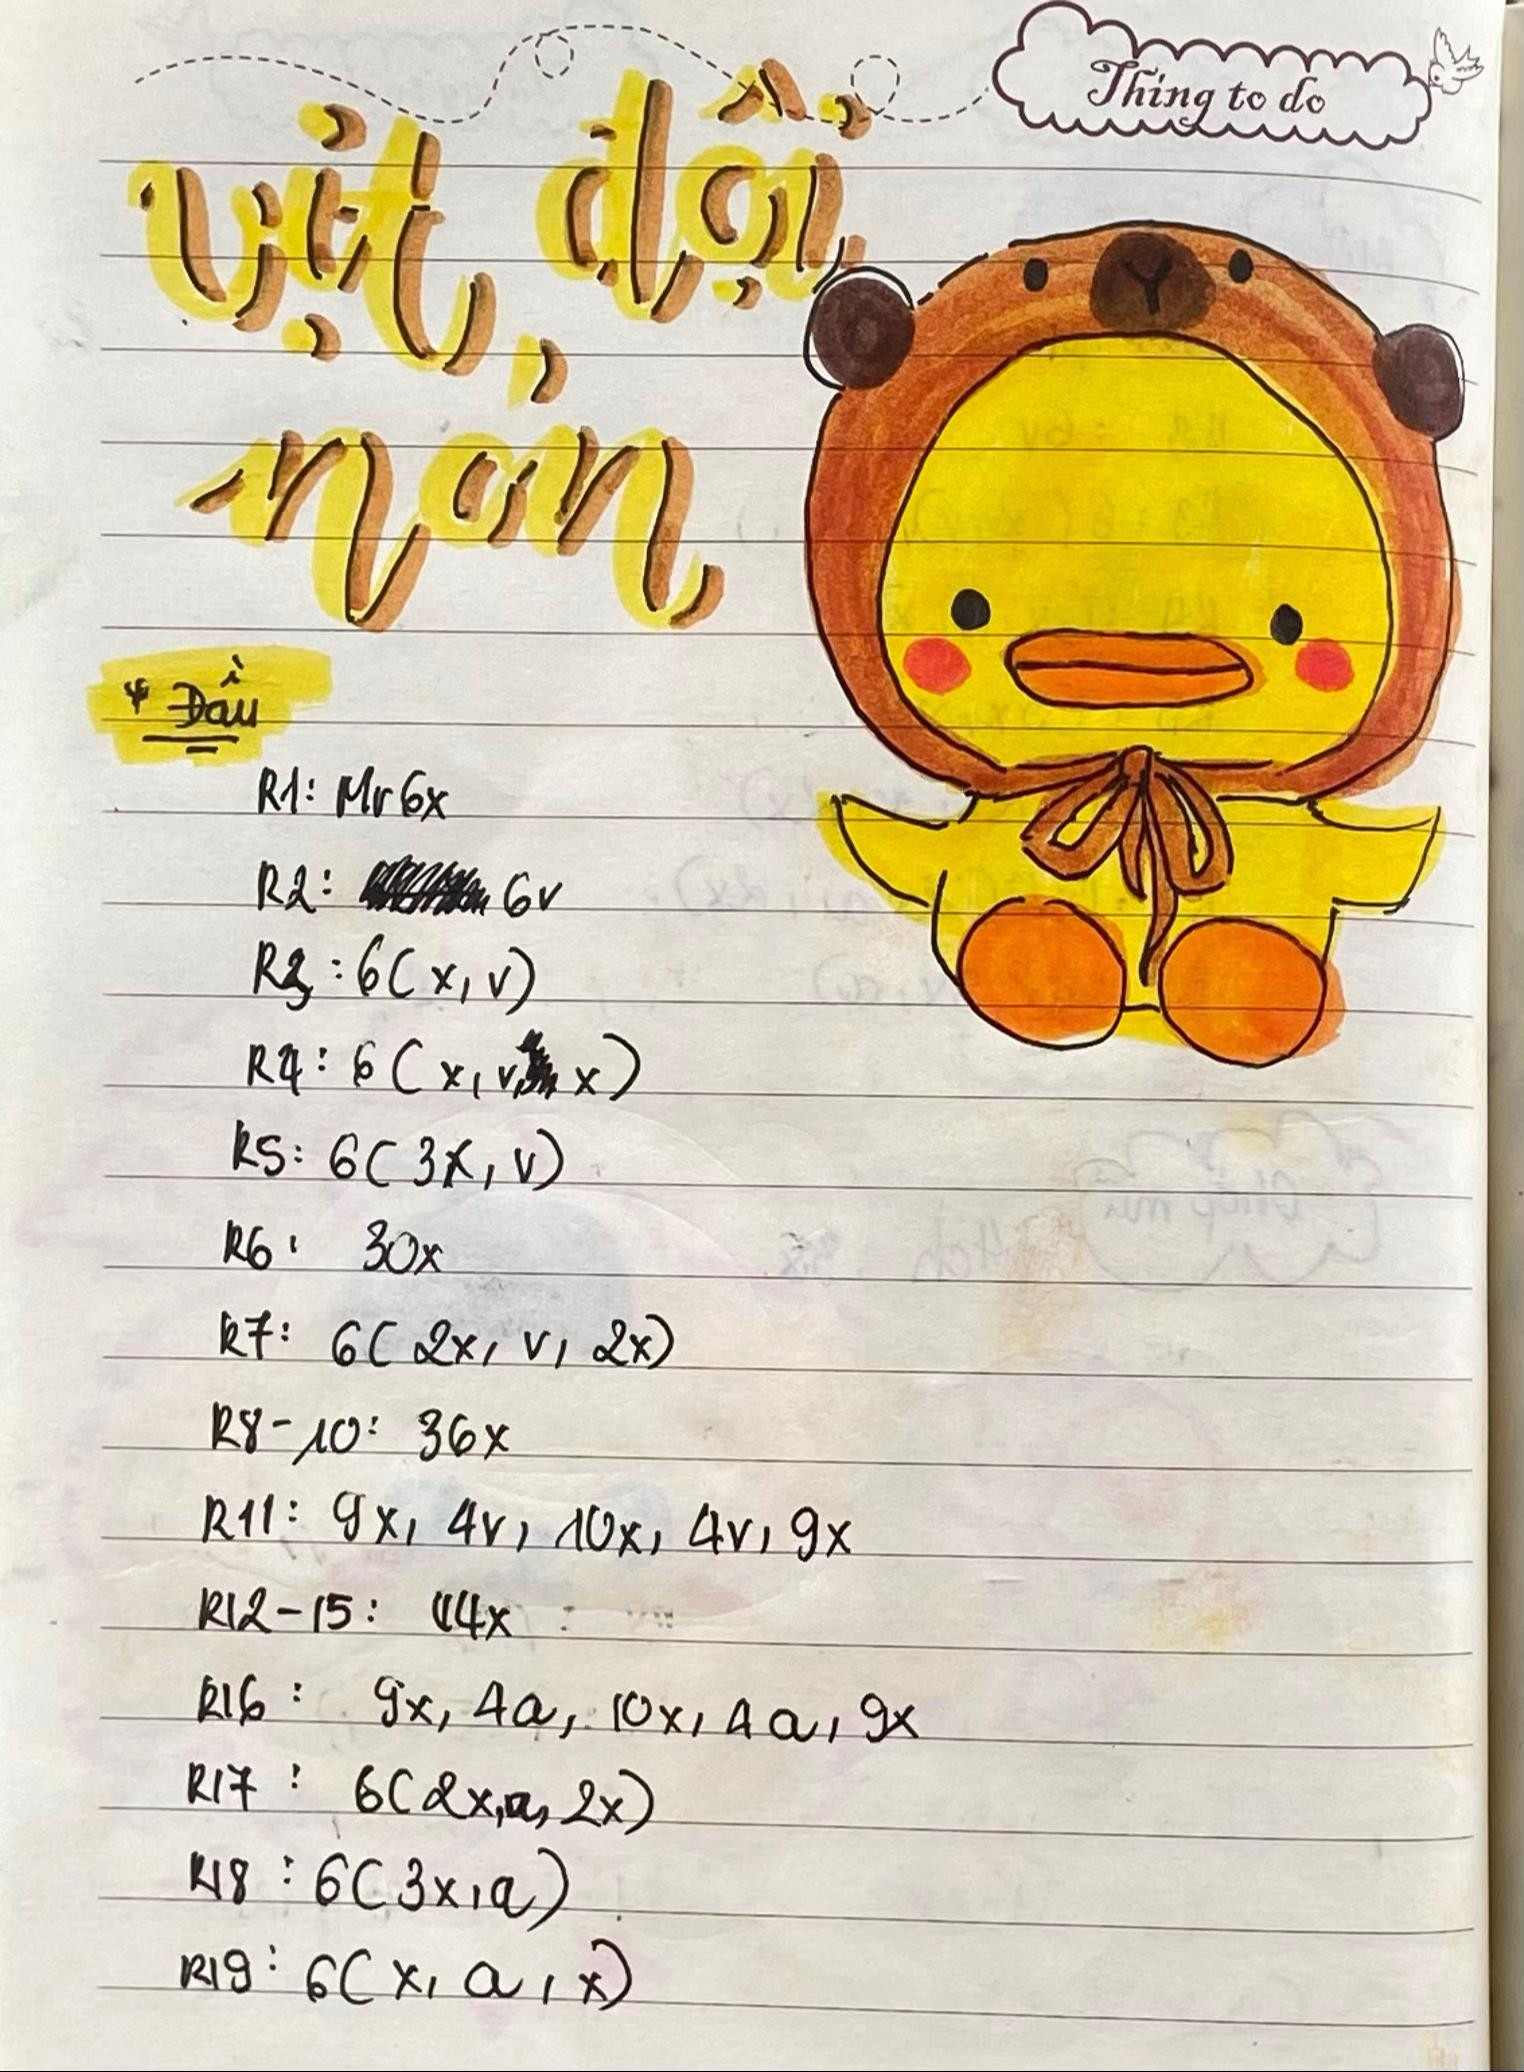 Thing to do
vịt đội
nón
* Đầu
R1: Mr 6x
R2: 6v
R3: 6(x, v)
R4: 6(x, v, x)
R5: 6(3x, v)
R6: 30x
R7: 6(2x, v, 2x)
R8-10: 36x
R11: 9x, 4v, 10x, 4v, 9x
R12-15: 44x
R16: 9x, 4a, 10x, 4a, 9x
R17: 6(2x, a, 2x)
R18: 6(3x, a)
R19: 6(x, a, x)